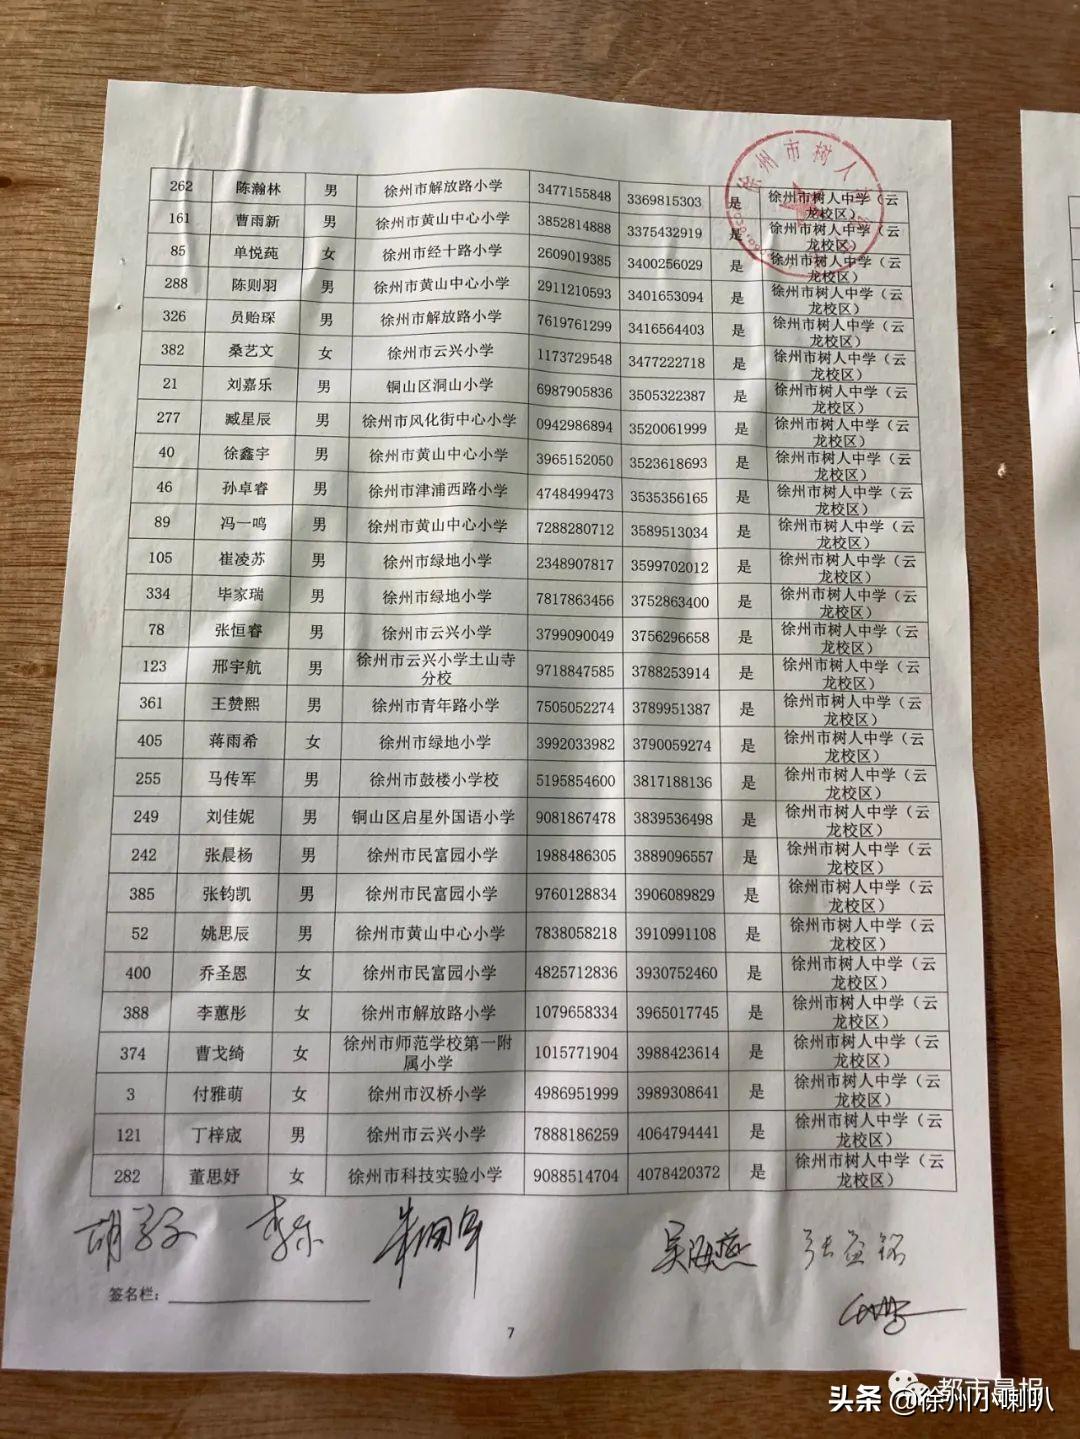 徐州市树人中学
262 陈瀚林 男 徐州市解放路小学 3477155848 3369815303 是 徐州市树人中学（云龙校区）
161 曹雨新 男 徐州市黄山中心小学 3852814888 3375432919 是 徐州市树人中学（云龙校区）
85 单悦莼 女 徐州市经十路小学 2609019385 3400256029 是 徐州市树人中学（云龙校区）
288 陈则羽 男 徐州市黄山中心小学 2911210593 3401653094 是 徐州市树人中学（云龙校区）
326 员贻琛 男 徐州市解放路小学 7619761299 3416564403 是 徐州市树人中学（云龙校区）
382 桑艺文 女 徐州市云兴小学 1173729548 3477222718 是 徐州市树人中学（云龙校区）
21 刘嘉乐 男 铜山区洞山小学 6987905836 3505322387 是 徐州市树人中学（云龙校区）
277 臧星辰 男 徐州市风化街中心小学 0942986894 3520061999 是 徐州市树人中学（云龙校区）
40 徐鑫宇 男 徐州市黄山中心小学 3965152050 3523618693 是 徐州市树人中学（云龙校区）
46 孙卓睿 男 徐州市津浦西路小学 4748499473 3535356165 是 徐州市树人中学（云龙校区）
89 冯一鸣 男 徐州市黄山中心小学 7288280712 3589513034 是 徐州市树人中学（云龙校区）
105 崔凌苏 男 徐州市绿地小学 2348907817 3599702012 是 徐州市树人中学（云龙校区）
334 毕家瑞 男 徐州市绿地小学 7817863456 3752863400 是 徐州市树人中学（云龙校区）
78 张恒睿 男 徐州市云兴小学 3799090049 3756296658 是 徐州市树人中学（云龙校区）
123 邢宇航 男 徐州市云兴小学土山寺分校 9718847585 3788253914 是 徐州市树人中学（云龙校区）
361 王赞熙 男 徐州市青年路小学 7505052274 3789951387 是 徐州市树人中学（云龙校区）
405 蒋雨希 女 徐州市绿地小学 3992033982 3790059274 是 徐州市树人中学（云龙校区）
255 马传军 男 徐州市鼓楼小学校 5195854600 3817188136 是 徐州市树人中学（云龙校区）
249 刘佳妮 男 铜山区启星外国语小学 9081867478 3839536498 是 徐州市树人中学（云龙校区）
242 张晨杨 男 徐州市民富园小学 1988486305 3889096557 是 徐州市树人中学（云龙校区）
385 张钧凯 男 徐州市民富园小学 9760128834 3906089829 是 徐州市树人中学（云龙校区）
52 姚思辰 男 徐州市黄山中心小学 7838058218 3910991108 是 徐州市树人中学（云龙校区）
400 乔圣恩 女 徐州市民富园小学 4825712836 3930752460 是 徐州市树人中学（云龙校区）
388 李蕙彤 女 徐州市解放路小学 1079658334 3965017745 是 徐州市树人中学（云龙校区）
374 曹戈绮 女 徐州市师范学校第一附属小学 1015771904 3988423614 是 徐州市树人中学（云龙校区）
3 付雅萌 女 徐州市汉桥小学 4986951999 3989308641 是 徐州市树人中学（云龙校区）
121 丁梓宬 男 徐州市云兴小学 7888186259 4064794441 是 徐州市树人中学（云龙校区）
282 董思妤 女 徐州市科技实验小学 9088514704 4078420372 是 徐州市树人中学（云龙校区）
吴海燕 张益铭
签名栏：
7
都市晨报
头条 @徐州小喇叭